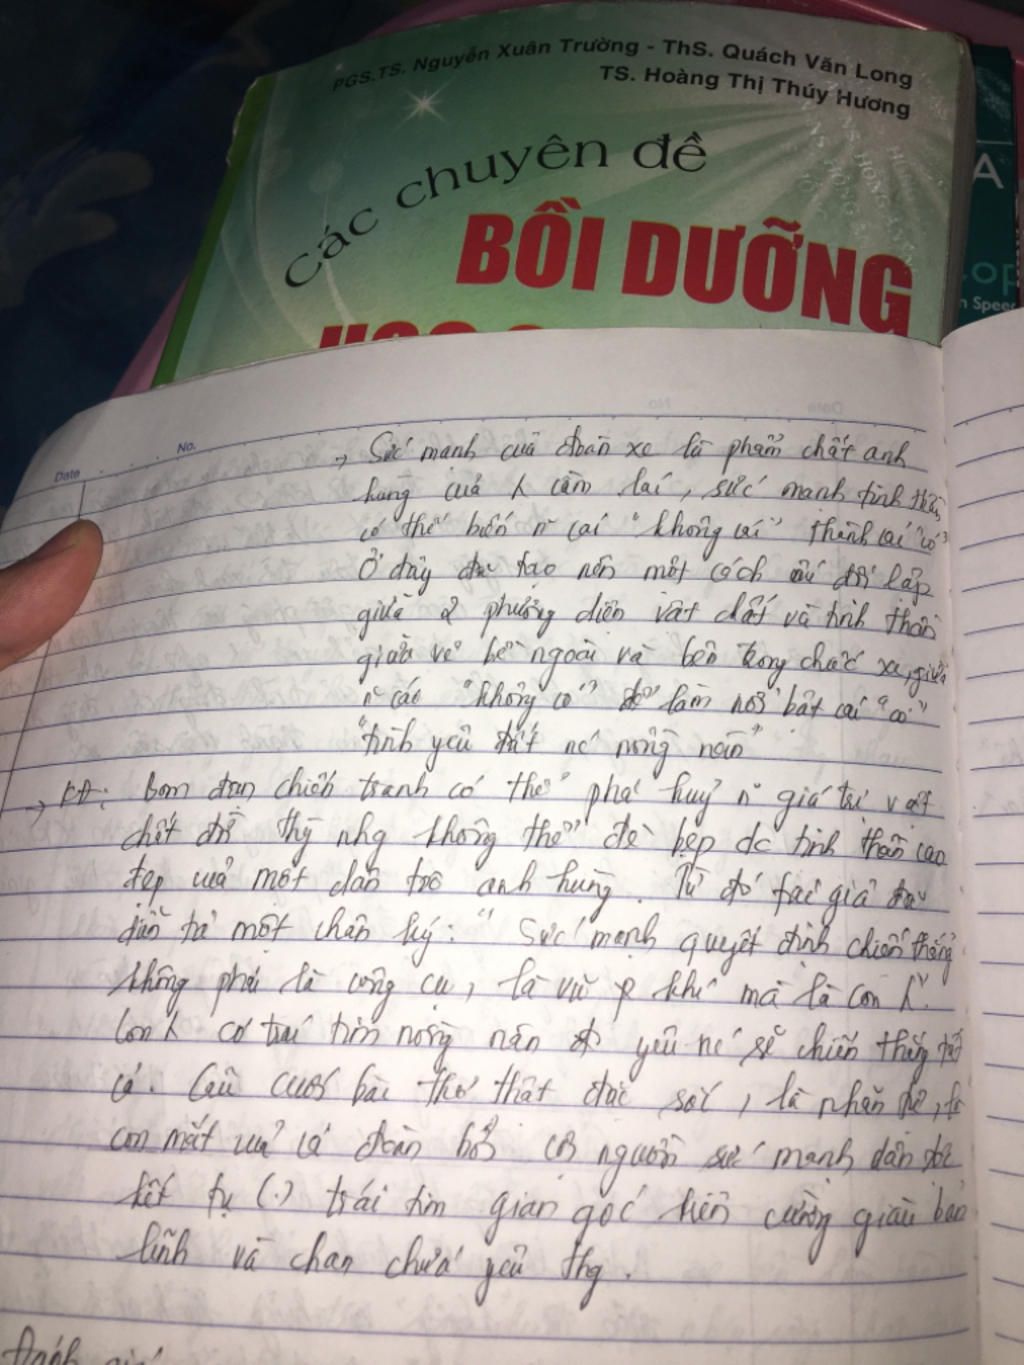 PGS.TS. Nguyễn Xuân Trường - ThS. Quách Văn Long
TS. Hoàng Thị Thúy Hương
Các chuyên đề
BỒI DƯỠNG
A
n Spee
Date
No.
→ Sức mạnh của đoàn xe là phẩm chất anh
hùng của cầm lái, sức mạnh tinh thần
có thể biến n~ cái "không cái" thành cái "có"
Ở đây đã tạo nên một cách đối lập
giữa 2 phương diện vật chất và tinh thần
giữa vẻ bề ngoài và bên trong chiếc xe, giữa
n~ cái "không có" để làm nổi bật cái "có"
"tình yêu đất nc nồng nàn"
→ KĐ: Bom đạn chiến tranh có thể phá huỷ n~ giá trị vật
chất đồ nhg không thể đè bẹp dc tinh thần cao
đẹp của một dân tộc anh hùng. Từ đó tác giả đã
diễn tả một chân lý: "Sức mạnh quyết định chiến thắng
không phải là công cụ, là vũ khí mà là con
con có trái tim nồng nàn yêu nc sẽ chiến thắng tất
cả. Câu cuối bài thơ thật đặc sắc, là nhãn tự, là
con mắt của cả đoàn bởi cội nguồn sức mạnh dân tộc
kết tụ (.) trái tim gian góc kiên cường giàu bản
lĩnh và chan chứa yêu thg.
Đánh giá